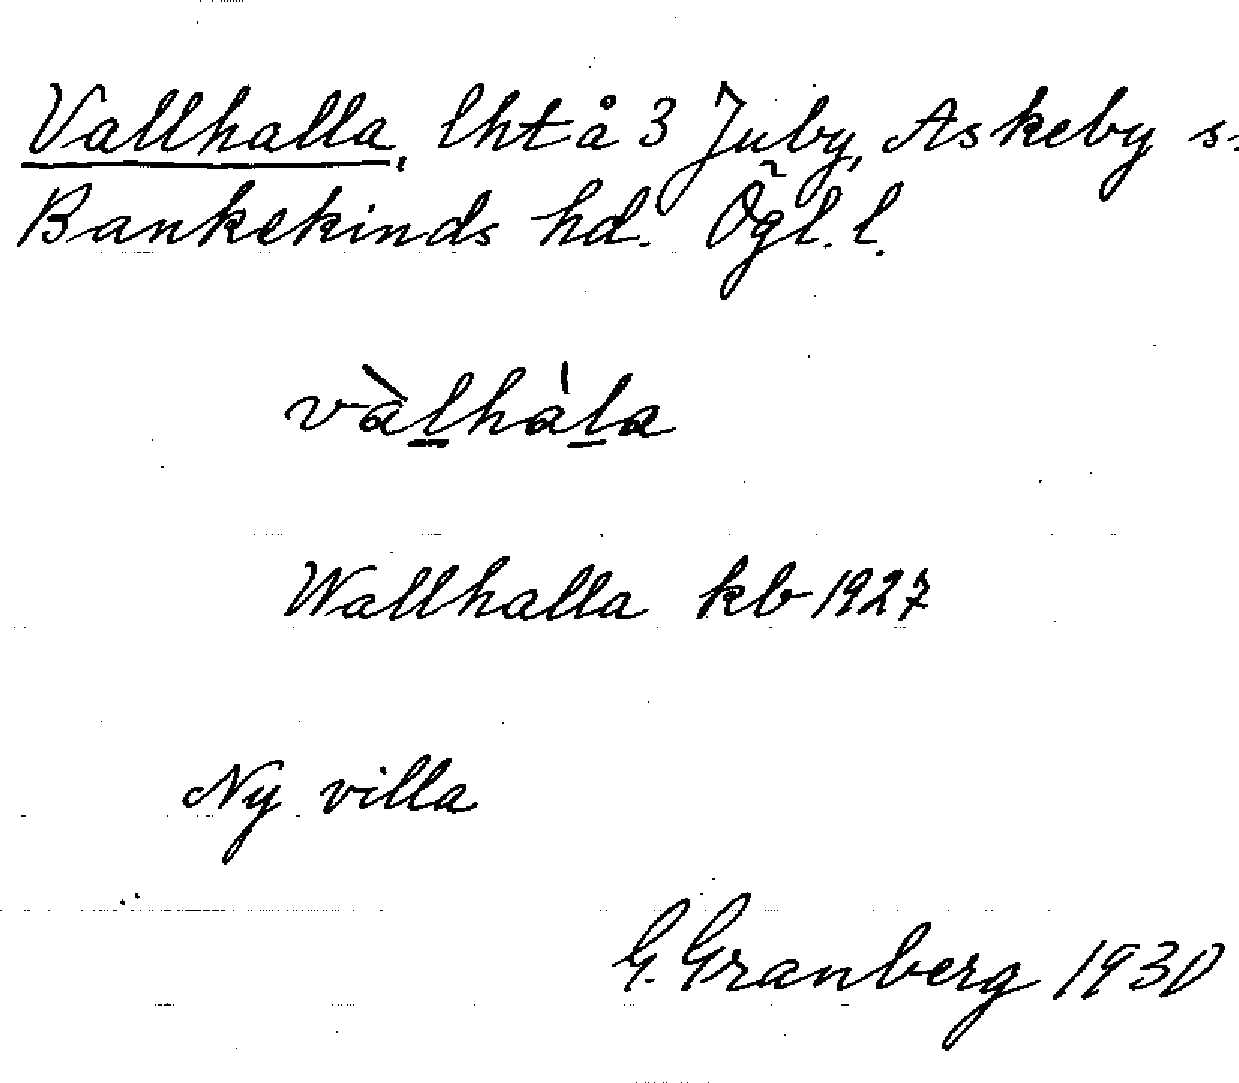 Vallhalla, lht å 3 Juby, Askeby s.
Bankekinds hd. Ögl. l.
vàlhàla
Wallhalla kb 1927
Ny villa
G. Granberg 1930